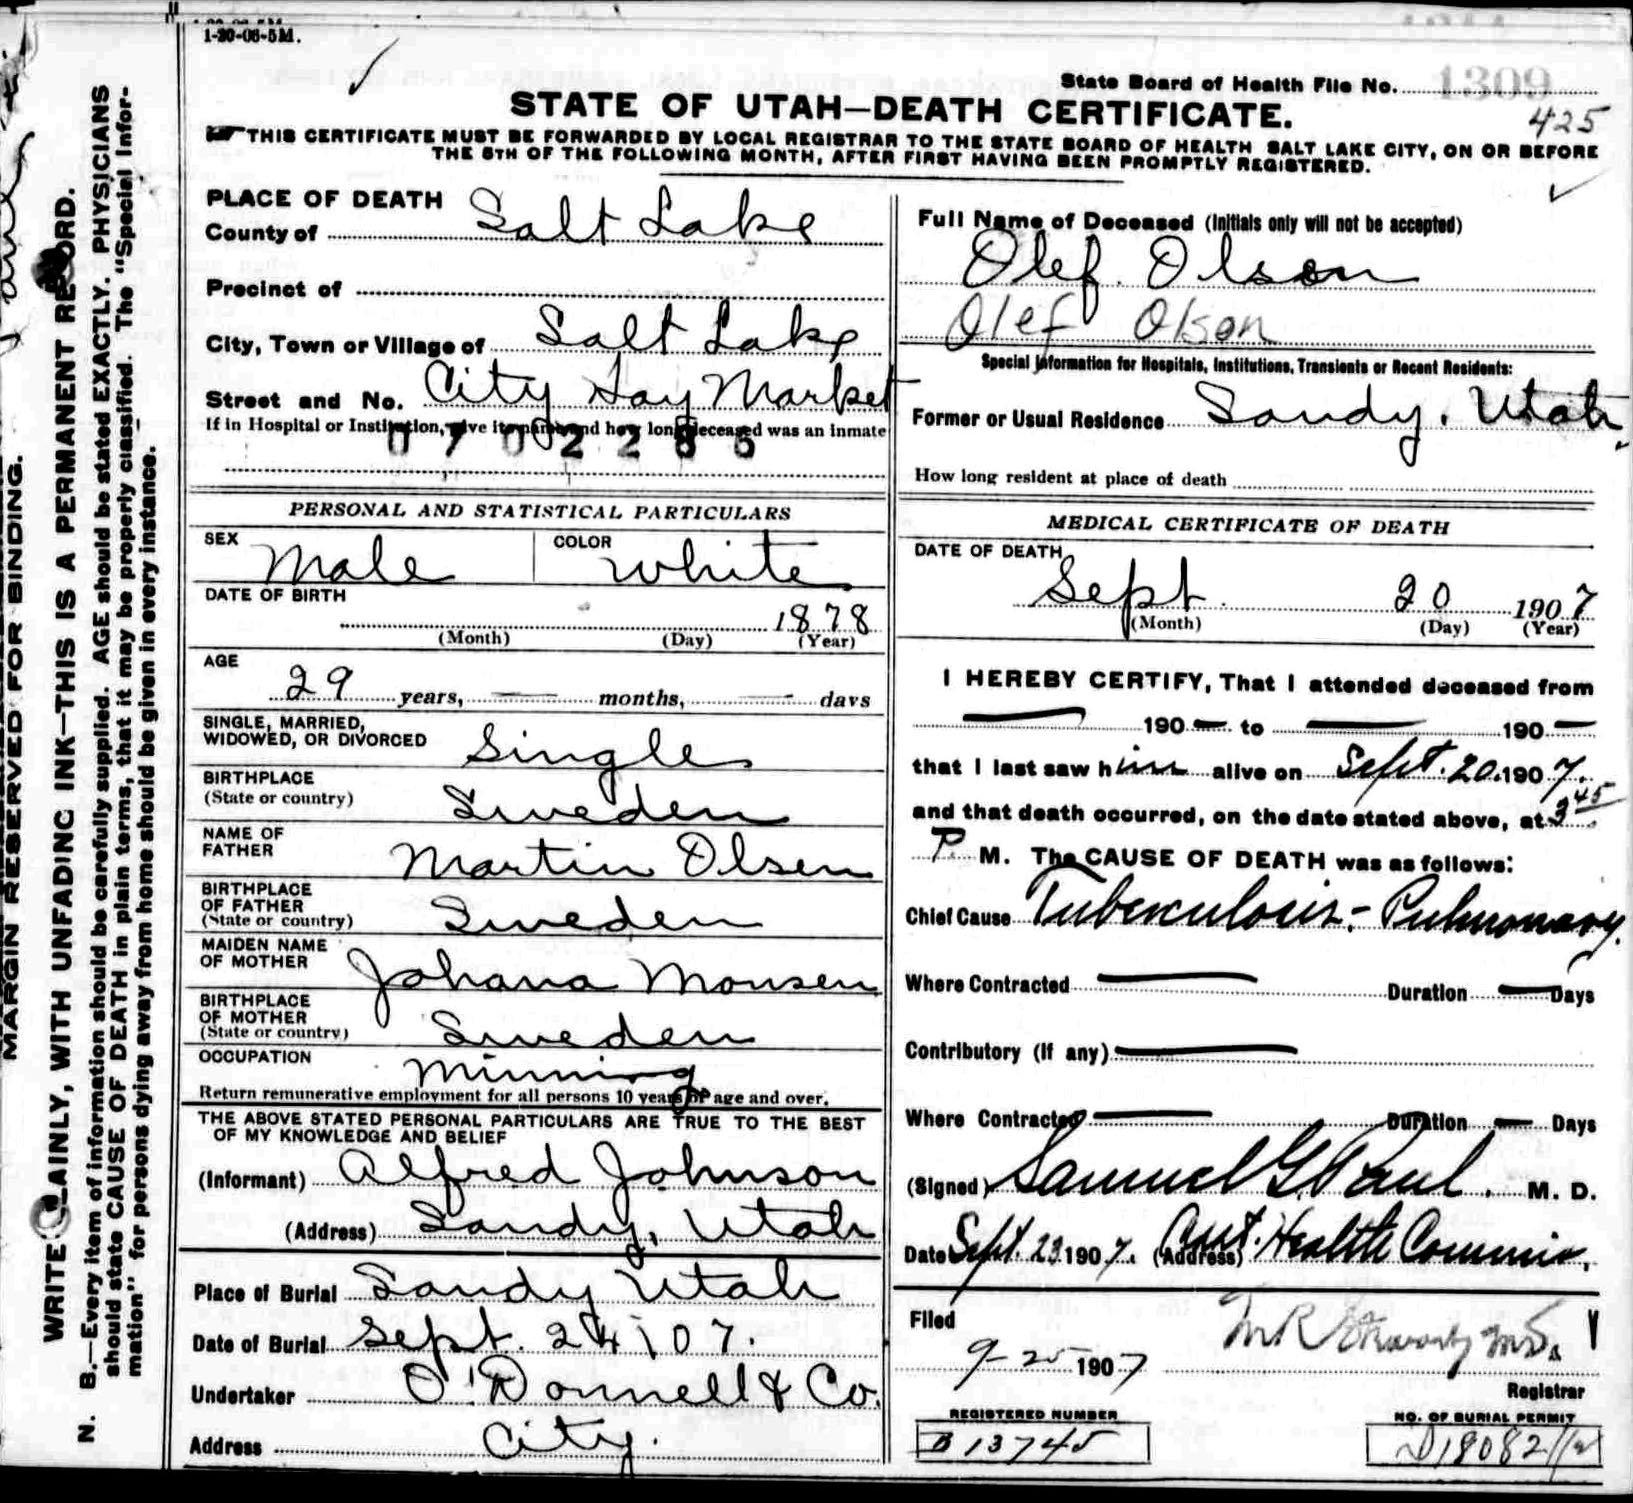 1-20-06-5M.
State Board of Health File No. 1309
STATE OF UTAH—DEATH CERTIFICATE.
425
THIS CERTIFICATE MUST BE FORWARDED BY LOCAL REGISTRAR TO THE STATE BOARD OF HEALTH SALT LAKE CITY, ON OR BEFORE
THE 5TH OF THE FOLLOWING MONTH, AFTER FIRST HAVING BEEN PROMPTLY REGISTERED.
MARGIN RESERVED FOR BINDING.
WRITE PLAINLY, WITH UNFADING INK—THIS IS A PERMANENT RECORD.
N. B.—Every item of information should be carefully supplied. AGE should be stated EXACTLY. PHYSICIANS
should state CAUSE OF DEATH in plain terms, that it may be properly classified. The "Special Infor-
mation" for persons dying away from home should be given in every instance.
PLACE OF DEATH
County of Salt Lake
Precinct of
City, Town or Village of Salt Lake
Street and No. City Hay Market
If in Hospital or Institution, give its name and how long deceased was an inmate
0702285
PERSONAL AND STATISTICAL PARTICULARS
SEX Male COLOR White
DATE OF BIRTH
1878
(Month) (Day) (Year)
AGE
29 years, — months, — days
SINGLE, MARRIED,
WIDOWED, OR DIVORCED Single
BIRTHPLACE
(State or country) Sweden
NAME OF
FATHER Martin Olsen
BIRTHPLACE
OF FATHER
(State or country) Sweden
MAIDEN NAME
OF MOTHER Johana Monsen
BIRTHPLACE
OF MOTHER
(State or country) Sweden
OCCUPATION Minning
Return remunerative employment for all persons 10 years of age and over.
THE ABOVE STATED PERSONAL PARTICULARS ARE TRUE TO THE BEST
OF MY KNOWLEDGE AND BELIEF
(Informant) Alfred Johnson
(Address) Sandy, Utah
Place of Burial Sandy Utah
Date of Burial Sept. 24 07.
Undertaker O'Donnell & Co.
Address City.
Full Name of Deceased (Initials only will not be accepted)
Olef Olson
Olef Olson
Special Information for Hospitals, Institutions, Transients or Recent Residents:
Former or Usual Residence Sandy, Utah,
How long resident at place of death
MEDICAL CERTIFICATE OF DEATH
DATE OF DEATH
Sept 20 1907
(Month) (Day) (Year)
I HEREBY CERTIFY, That I attended deceased from
— 190— to — 190—
that I last saw him alive on Sept. 20. 1907.
and that death occurred, on the date stated above, at 3 45
P. M. The CAUSE OF DEATH was as follows:
Chief Cause Tuberculosis - Pulmonary.
Where Contracted — Duration — Days
Contributory (If any) —
Where Contracted — Duration — Days
(Signed) Samuel G Paul. M. D.
Date Sept. 23 1907. (Address) Health Commis,
Filed
9-25 1907
Registrar
REGISTERED NUMBER
B 13745
NO. OF BURIAL PERMIT